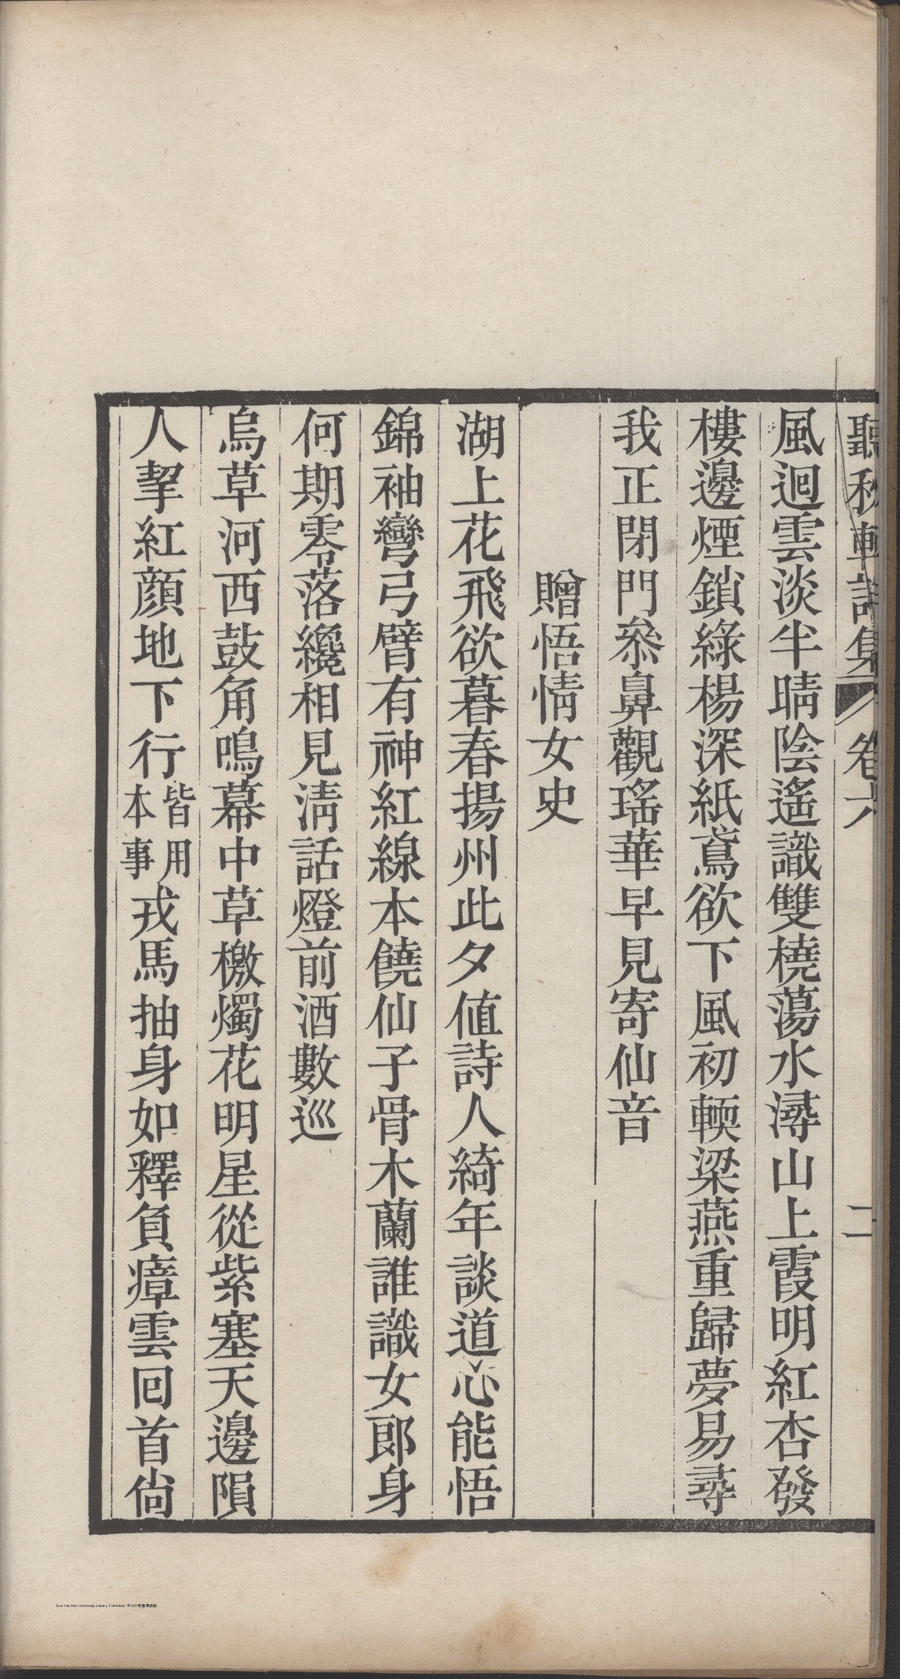 聽秋軒詩集 卷六 二
風迴雲淡半晴陰遙識雙橈蕩水潯山上霞明紅杏發
樓邊煙鎖綠楊深紙鳶欲下風初輭梁燕重歸夢易尋
我正閉門叅鼻觀瑤華早見寄仙音
贈悟情女史
湖上花飛欲暮春揚州此夕値詩人綺年談道心能悟
錦袖彎弓臂有神紅線本饒仙子骨木蘭誰識女郎身
何期零落纔相見淸話燈前酒數巡
烏草河西鼓角鳴幕中草檄燭花明星從紫塞天邊隕
人挈紅顔地下行皆用本事戎馬抽身如釋負瘴雲回首尙